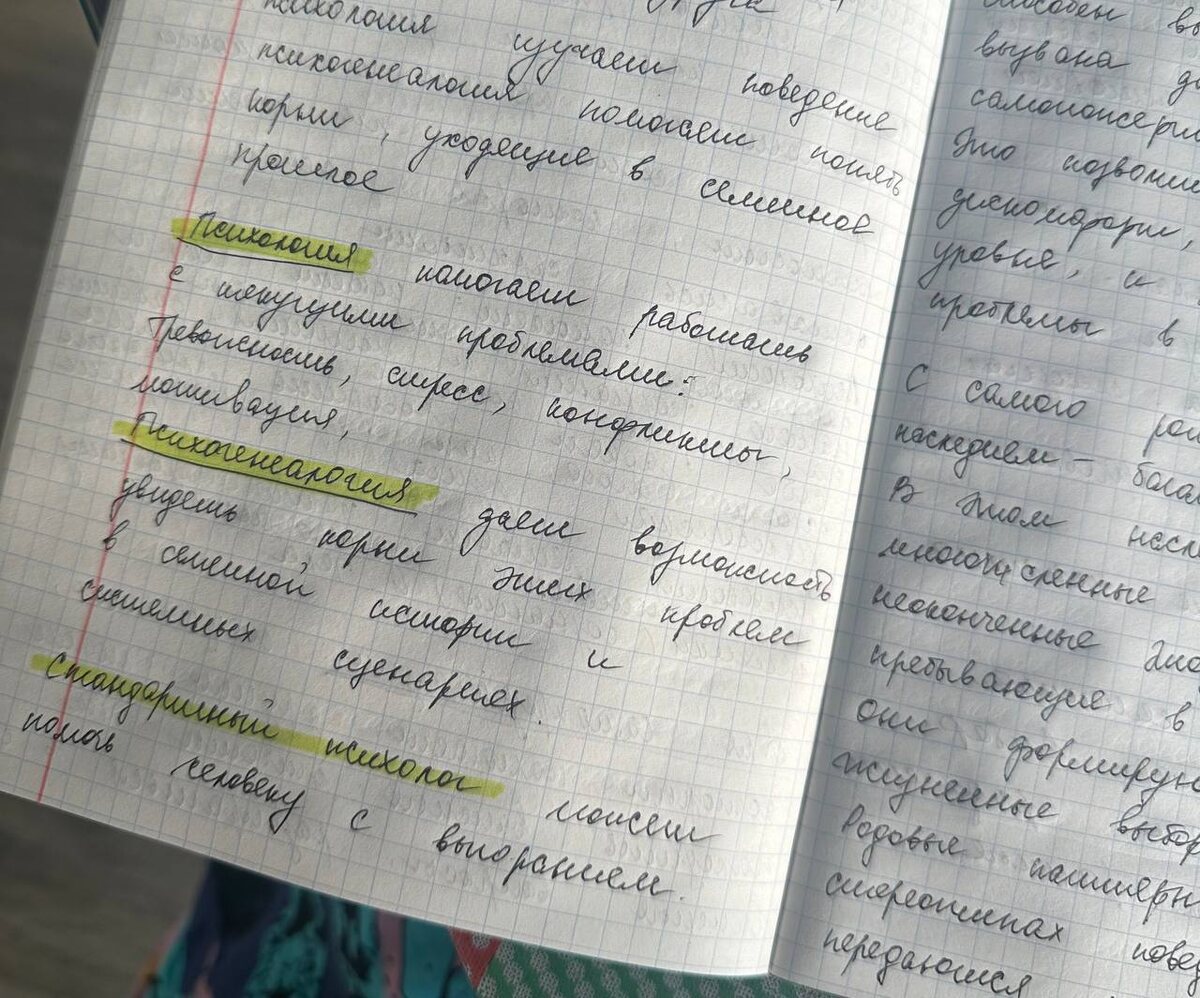 психология изучает поведение
психогенеалогия помогает понять
корни, уходящие в семейное
прошлое
Психология помогает работать
с текущими проблемами:
Тревожность, стресс, конфликты,
мотивация,
Психогенеалогия дает возможность
увидеть корни этих проблем
в семейной истории и
системных сценариях.
Стандартный психолог может
помочь человеку с выгоранием.
способен
вызвана
Это
дискомфорт,
уровне, и
проблемы в
С самого
наследием –
В этом
многочисленные
неоконченные
пребывающие в
они
жизненные
Родовые
стереотипах
передающиеся